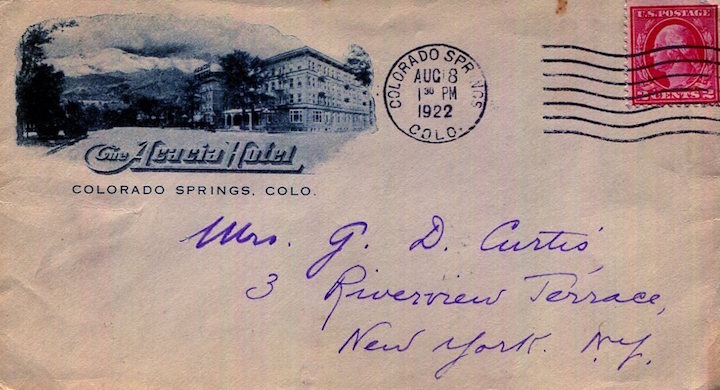 The Acacia Hotel
COLORADO SPRINGS, COLO.
COLORADO SPRINGS
AUG 8
1 30 PM
1922
COLO.
U.S. POSTAGE
2 CENTS 2
Mrs. G. D. Curtis
3 Riverview Terrace,
New York. N.Y.